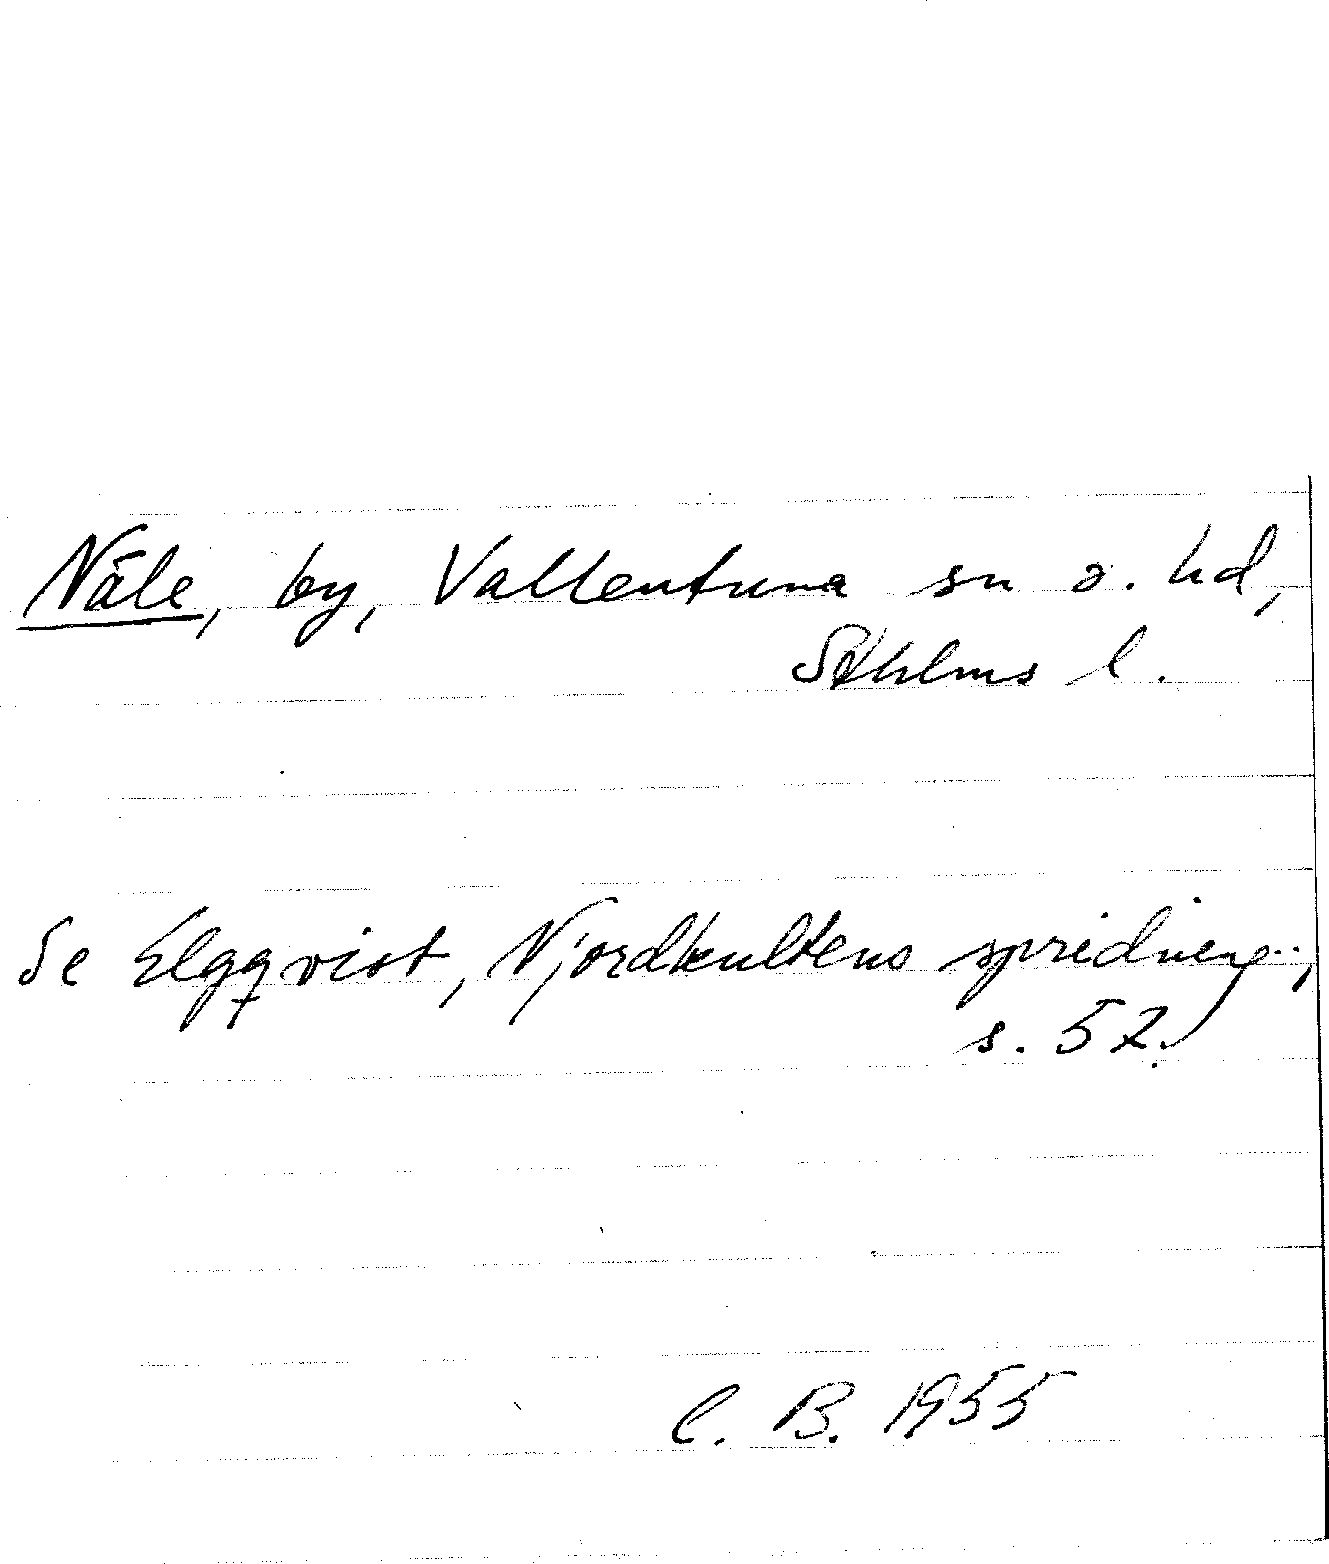 Nåle, by, Vallentuna sn o. hd,
Sthlms l.
Se Elgqvist, Njordkultens spridning..,
s. 52.
C. B. 1955